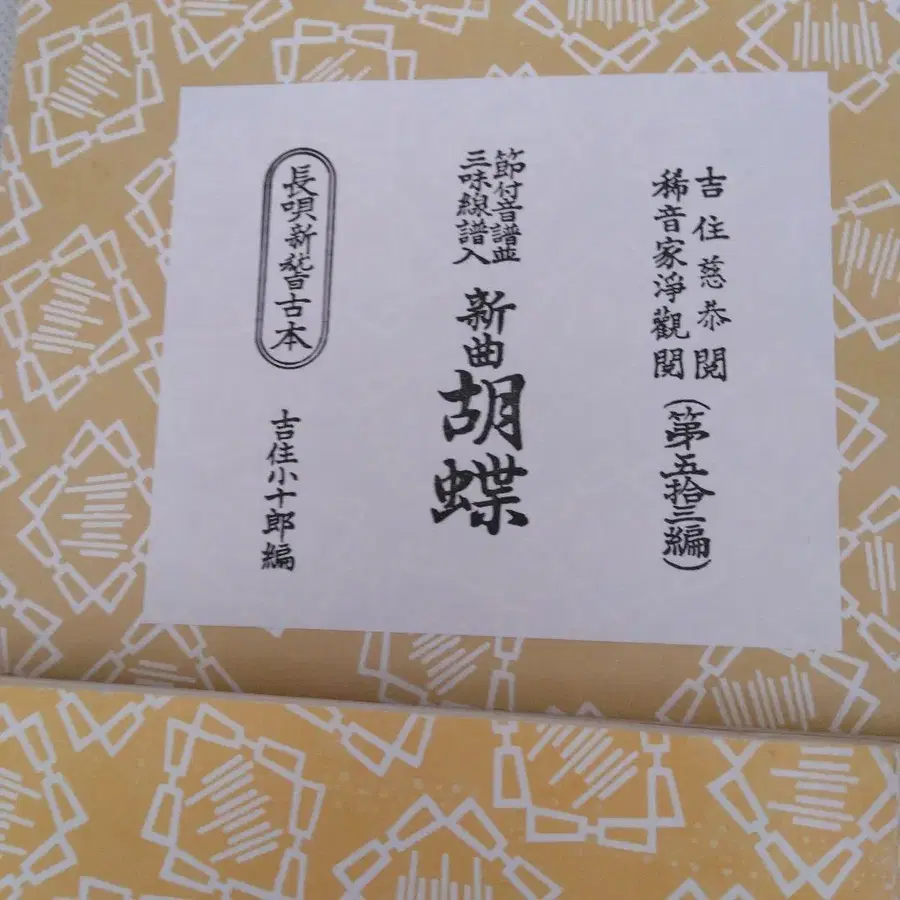 吉住慈恭閲
稀音家淨觀閲
(第五拾三編)
節付音譜並
三味線譜入
新曲
胡蝶
長唄新稽古本
吉住小十郎編